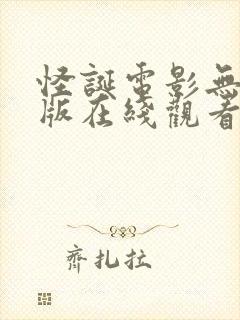 怪誕電影無
版在綫觀看
齊扎拉